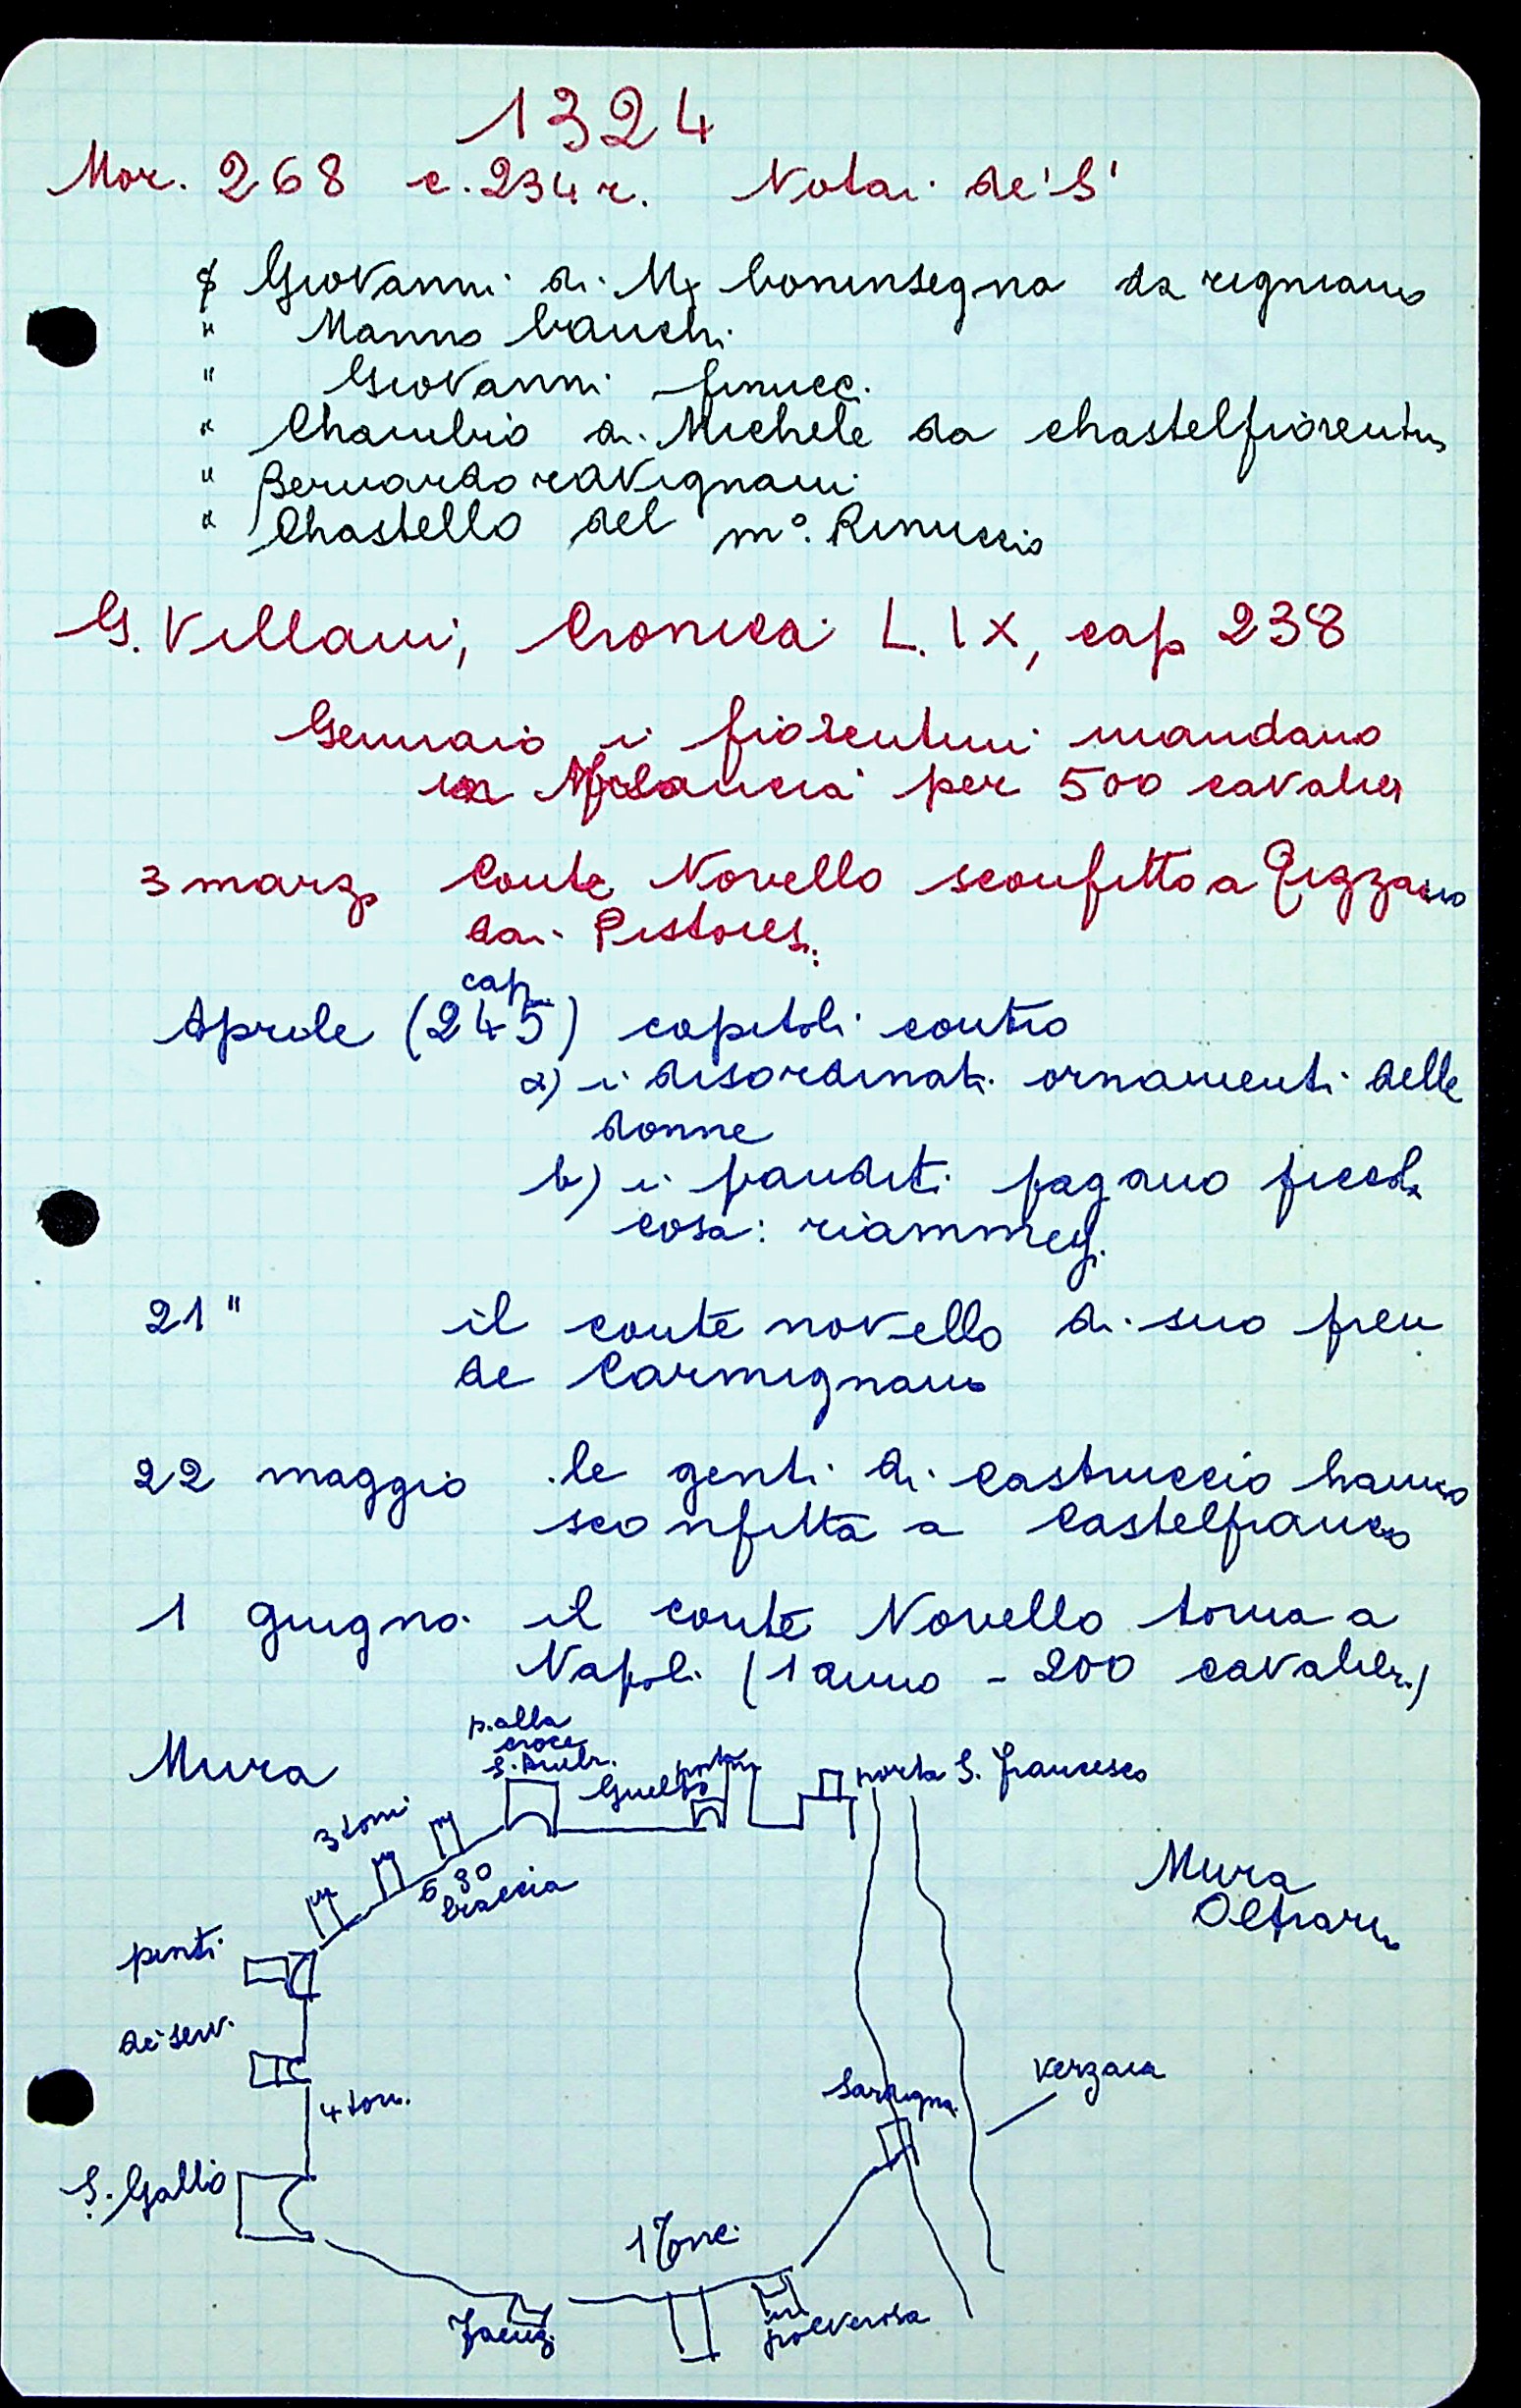 1324
Mor. 268 c. 234 r. Notai de' S'
Giovanni di Mx boninsegna da rignano
" Manno banchi
" Giovanni finucci
" Chambio di Michele da chastelfiorentino
" Bernardo ravignani
" Chastello del m°. Rinuccio
G. Villani, Cronica L. IX, cap 238
Gennaio i fiorentini mandano
in francia per 500 cavalieri
3 marzo Conte Novello sconfitto a
dai Pistoiesi
cap.
Aprile (245) capitoli contro
a) i disordinati ornamenti delle
donne
b) i banditi pagano piccola
cosa: riammessi
21 " il conte novello di suo pren
de Carmignano
22 maggio le genti di Castruccio hanno
sconfitta a Castelfranco
1 giugno il conte Novello torna a
Napoli (1 anno - 200 cavalieri)
Mura
p. alla
croce
S. Ambr.
Guelfa
porta
porta S. Francesco
3 torri
630
braccia
Mura
Oltrarno
pinti
de' servi
4 torri
S. Gallo
Sardigna
Verzaia
1 Torre
Faenza
polverosa